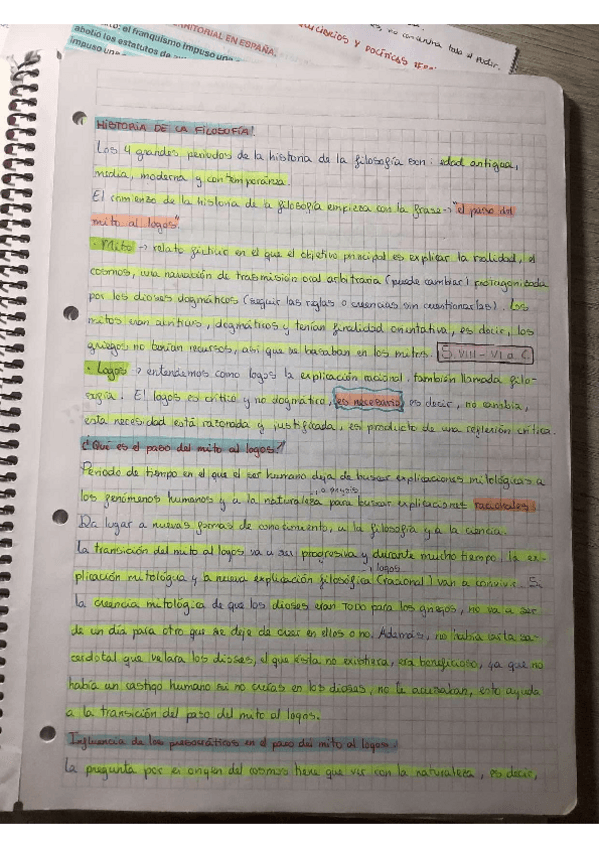 el franquismo impuso una
abolió los estatutos de
impuso una
RRITORIAL EN ESPAÑA.
y políticas
no controlar todo el poder.
HISTORIA DE LA FILOSOFÍA!
Los 4 grandes periodos de la historia de la filosofía son: edad antigua,
media, moderna y contemporánea.
El comienzo de la historia de la filosofía empieza con la frase → "el paso del
mito al logos"
· Mito → relato ficticio en el que el objetivo principal es explicar la realidad, el
cosmos, una narración de trasmisión oral arbitraria (puede cambiar) protagonizada
por los dioses dogmáticos (seguir las reglas o creencias sin cuestionarlas). Los
mitos eran dogmáticos y tenían finalidad orientativa, es decir, los
griegos no tenían recursos, así que se basaban en los mitos. S. VIII - VI a.C.
· Logos → entendemos como logos la explicación racional, también llamada filo-
sofía. El logos es crítico y no dogmático, es necesario, es decir, no cambia,
esta necesidad está razonada y justificada, es producto de una reflexión crítica.
¿Qué es el paso del mito al logos?
Periodo de tiempo en el que el ser humano deja de buscar explicaciones mitológicas a
los fenómenos humanos y a la naturaleza para buscar explicaciones racionales.
Da lugar a nuevas formas de conocimiento, a la filosofía y a la ciencia.
La transición del mito al logos va a ser progresiva y durante mucho tiempo, la ex-
plicación mitológica y la nueva explicación filosófica (racional) van a convivir. Si
logos
la creencia mitológica de que los dioses eran TODO para los griegos, no va a ser
de un día para otro que se deje de creer en ellos o no. Además, no había casta sa-
cerdotal que velara los dioses, el que ésta no existiera, era beneficioso, ya que no
había un castigo humano si no creías en los dioses, no te acusaban, esto ayuda
a la transición del paso del mito al logos.
Influencia de los presocráticos en el paso del mito al logos.
La pregunta por el origen del cosmos tiene que ver con la naturaleza, es decir,